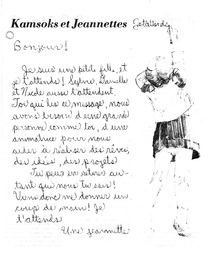 Kamsoks et Jeannettes Je t'attends
Bonjour!
Je suis une petite fille, et
je t'attends! Sylvie, Danielle
et Nicole aussi t'attendent.
Toi qui lis ce message, nous
avons besoin d'une grande
personne comme toi, d'une
animatrice pour nous
aider à réaliser des rêves,
des idées, des projets
Tu peux en retirer au-
tant que nous tu sais!
Viens donc me donner un
coup de main! Je
t'attends
Une jeannette